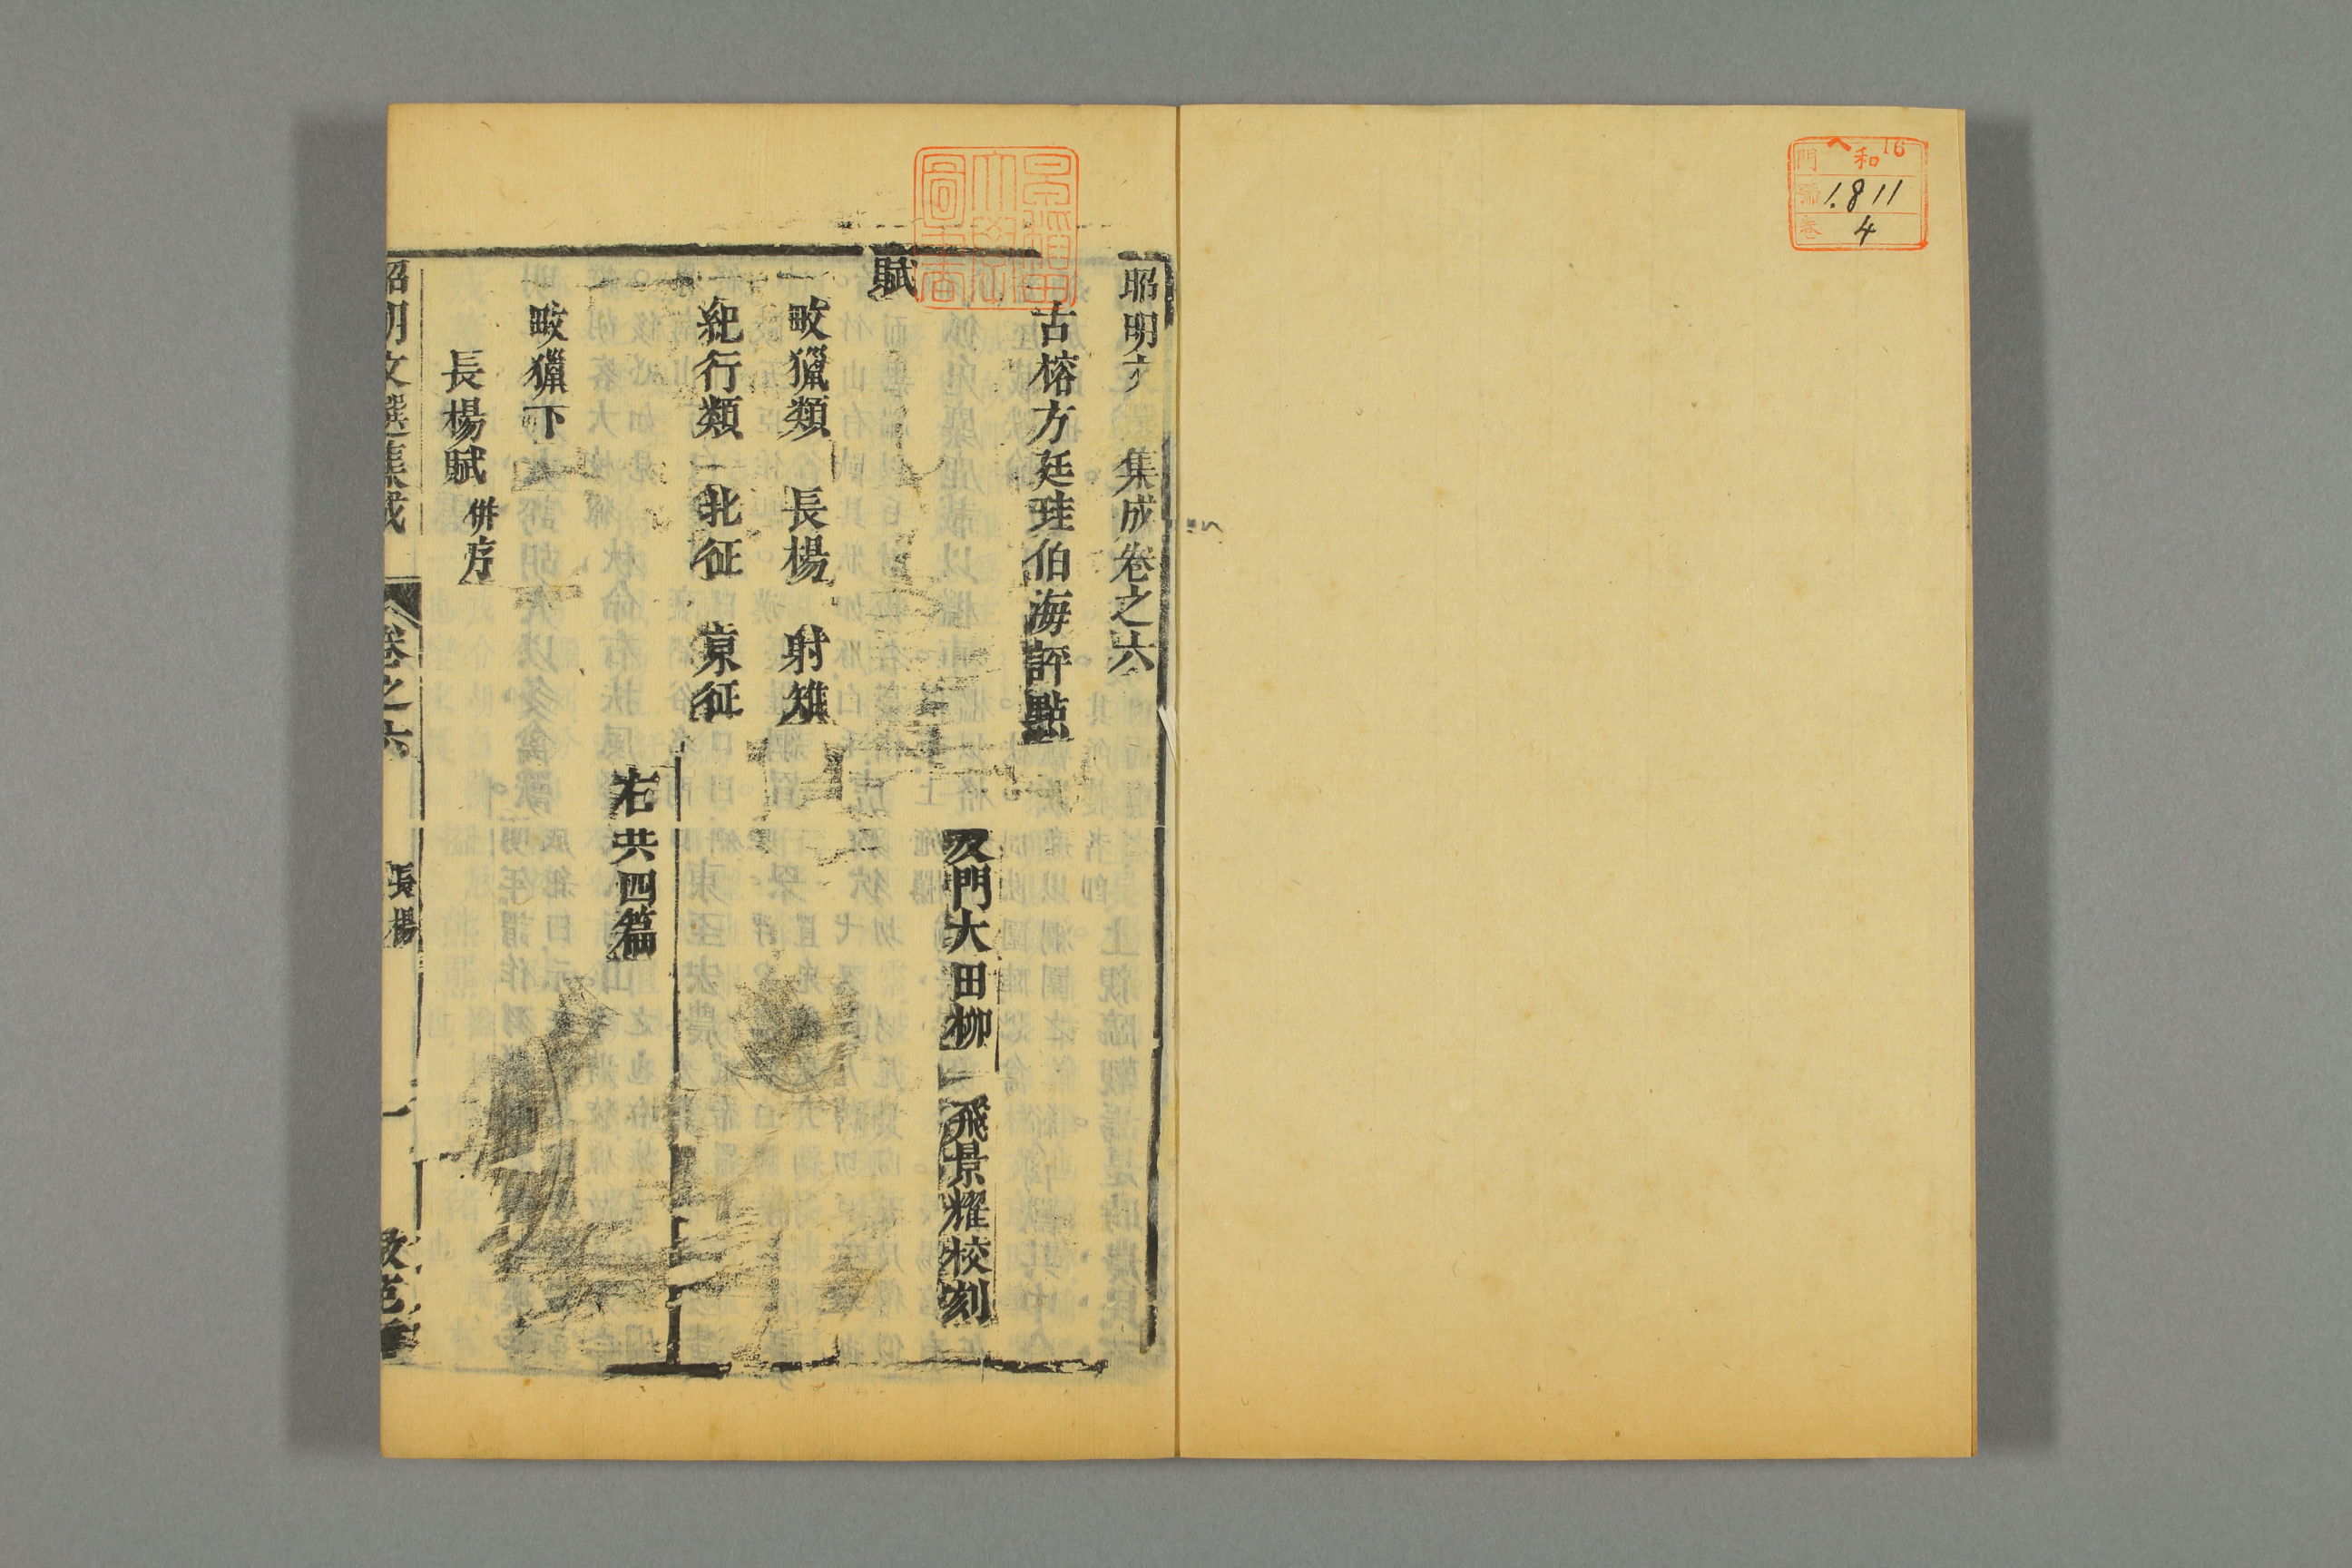 門 ヘ 和 16
號 1.811
卷 4
昭明文 集成卷之六
古榕方廷珪伯海評點
及門大田柳 飛景耀校刻
賦
畋獵類 長楊 射雉
紀行類 北征 東征
右共四篇
畋獵下
長楊賦 併序
昭明文選集成 卷之六 長楊 一